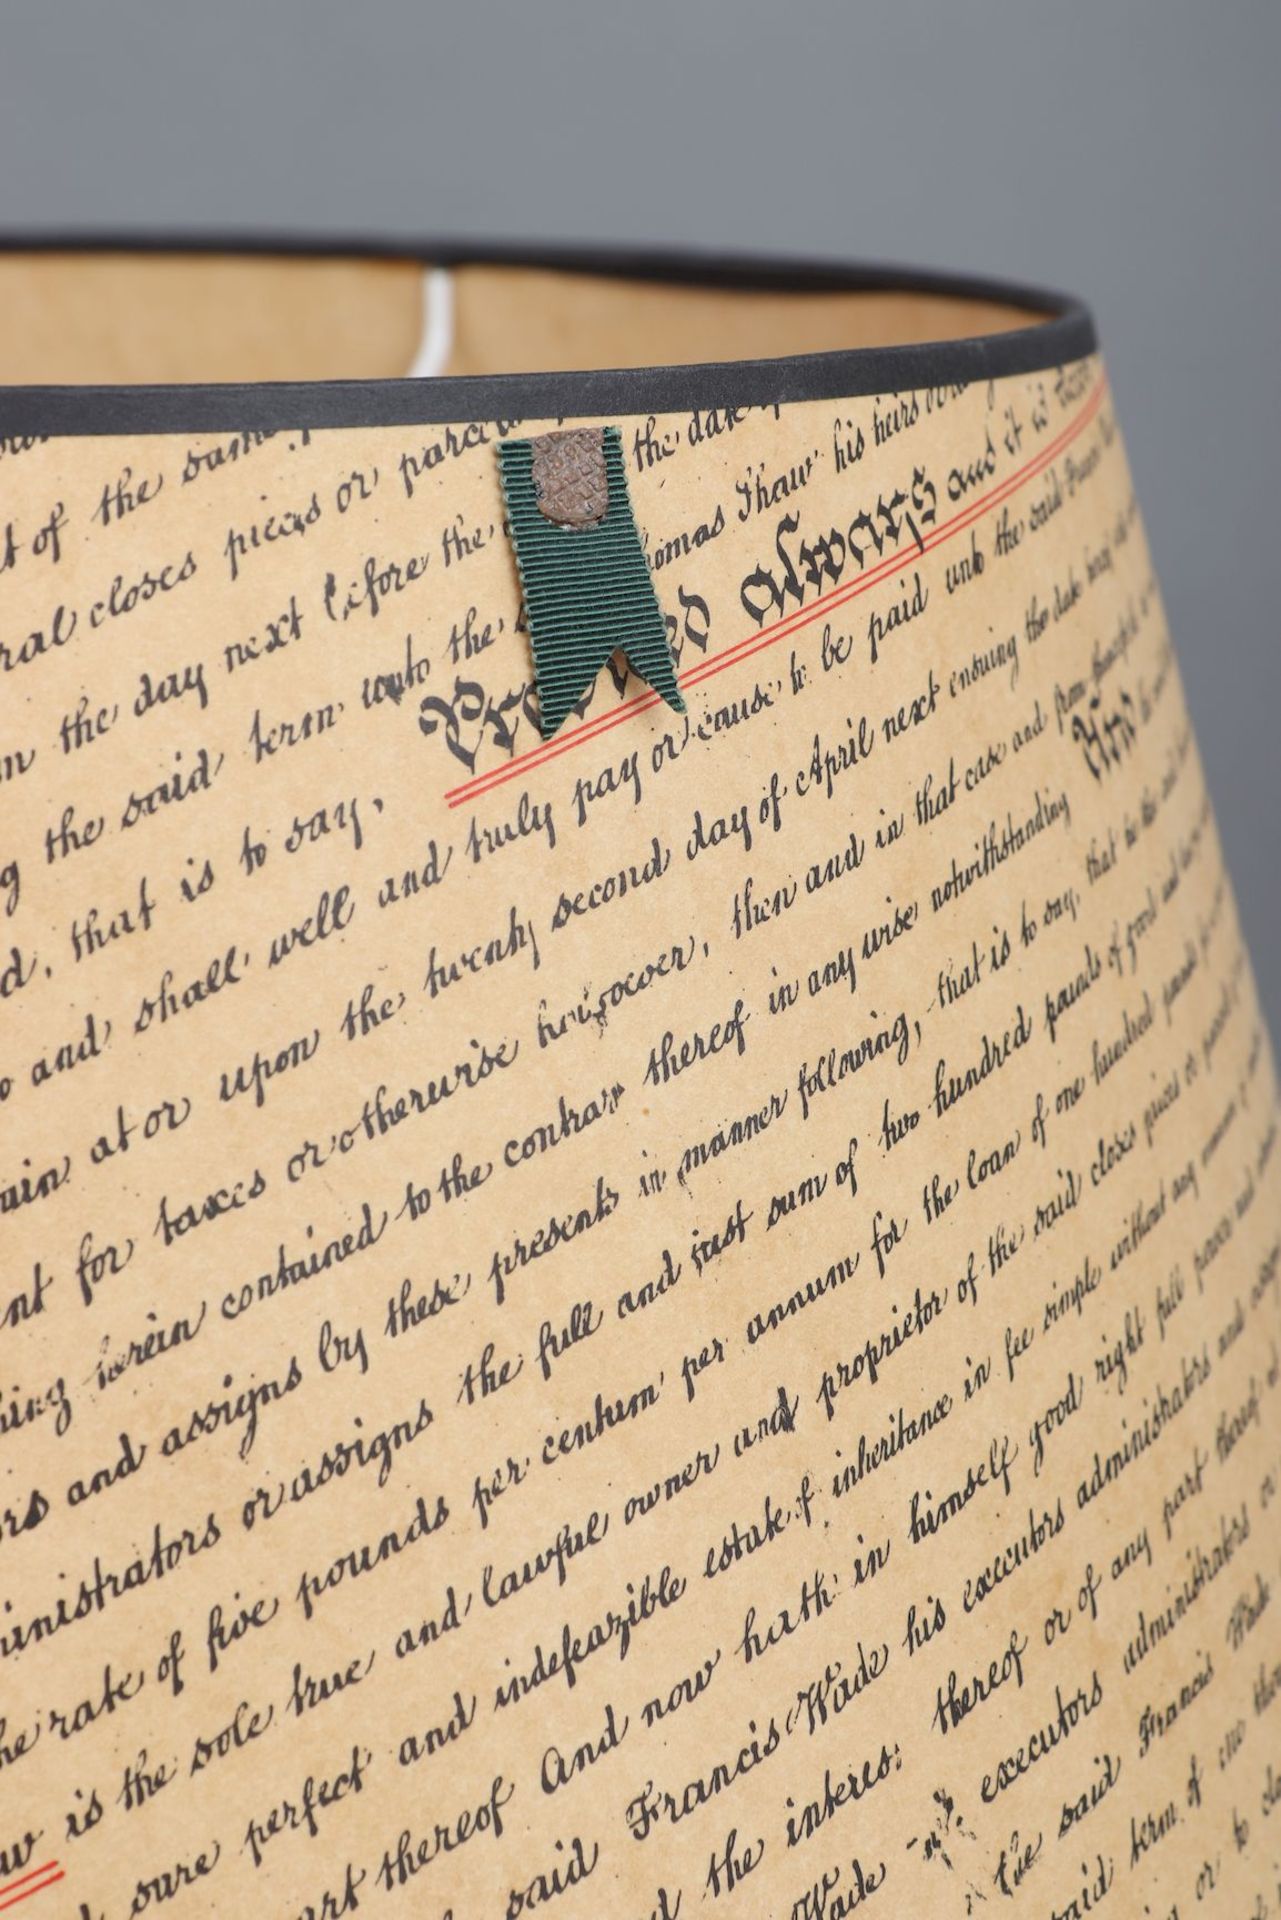 of the same
closes pieces or parcels the date
the day next before the Thomas Thaw his heirs
the said term unto the
that is to say, Provided always and it is
and shall well and truly pay or cause to be paid unto the said Francis
at or upon the twenty second day of April next ensuing the date
for taxes or otherwise howsoever, then and in that case and from thenceforth
herein contained to the contrary thereof in any wise notwithstanding And
and assigns by these presents in manner following, that is to say, that he the said
or assigns the full and just sum of two hundred pounds of good and
rate of five pounds per centum per annum for the loan of one hundred pounds
is the sole true and lawful owner and proprietor of the said closes pieces or parcels
sure perfect and indefeazible estate of inheritance in fee simple without any manner
thereof And now hath in himself good right full power and
said Francis Wade his executors administrators and assigns
the interest thereof or of any part thereof
Wade executors administrators or
the said Francis Wade
said term of
or to